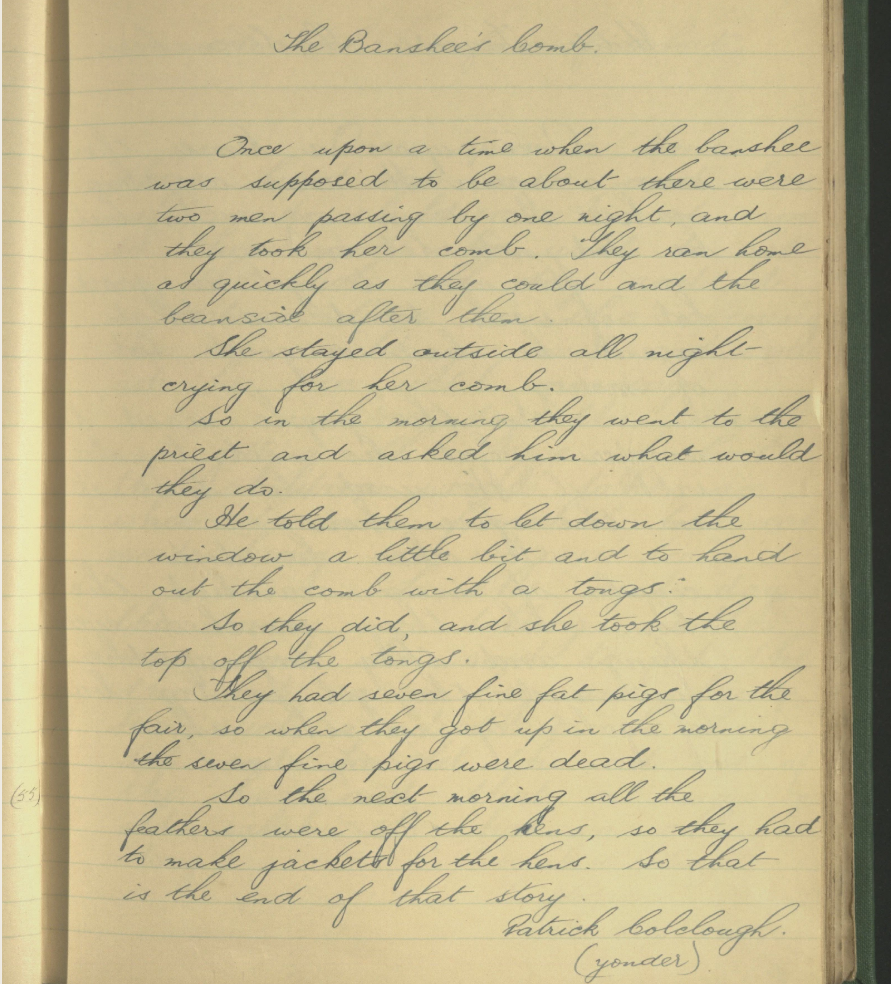 The Banshee's Comb.
Once upon a time when the banshee
was supposed to be about there were
two men passing by one night, and
they took her comb. They ran home
as quickly as they could and the
beanside after them.
She stayed outside all night
crying for her comb.
So in the morning they went to the
priest and asked him what would
they do.
He told them to let down the
window a little bit and to hand
out the comb with a tongs.
So they did, and she took the
top off the tongs.
They had seven fine fat pigs for the
fair, so when they got up in the morning
the seven fine pigs were dead.
(55)
So the next morning all the
feathers were off the hens, so they had
to make jackets for the hens. So that
is the end of that story.
Patrick Colclough.
(yonder)